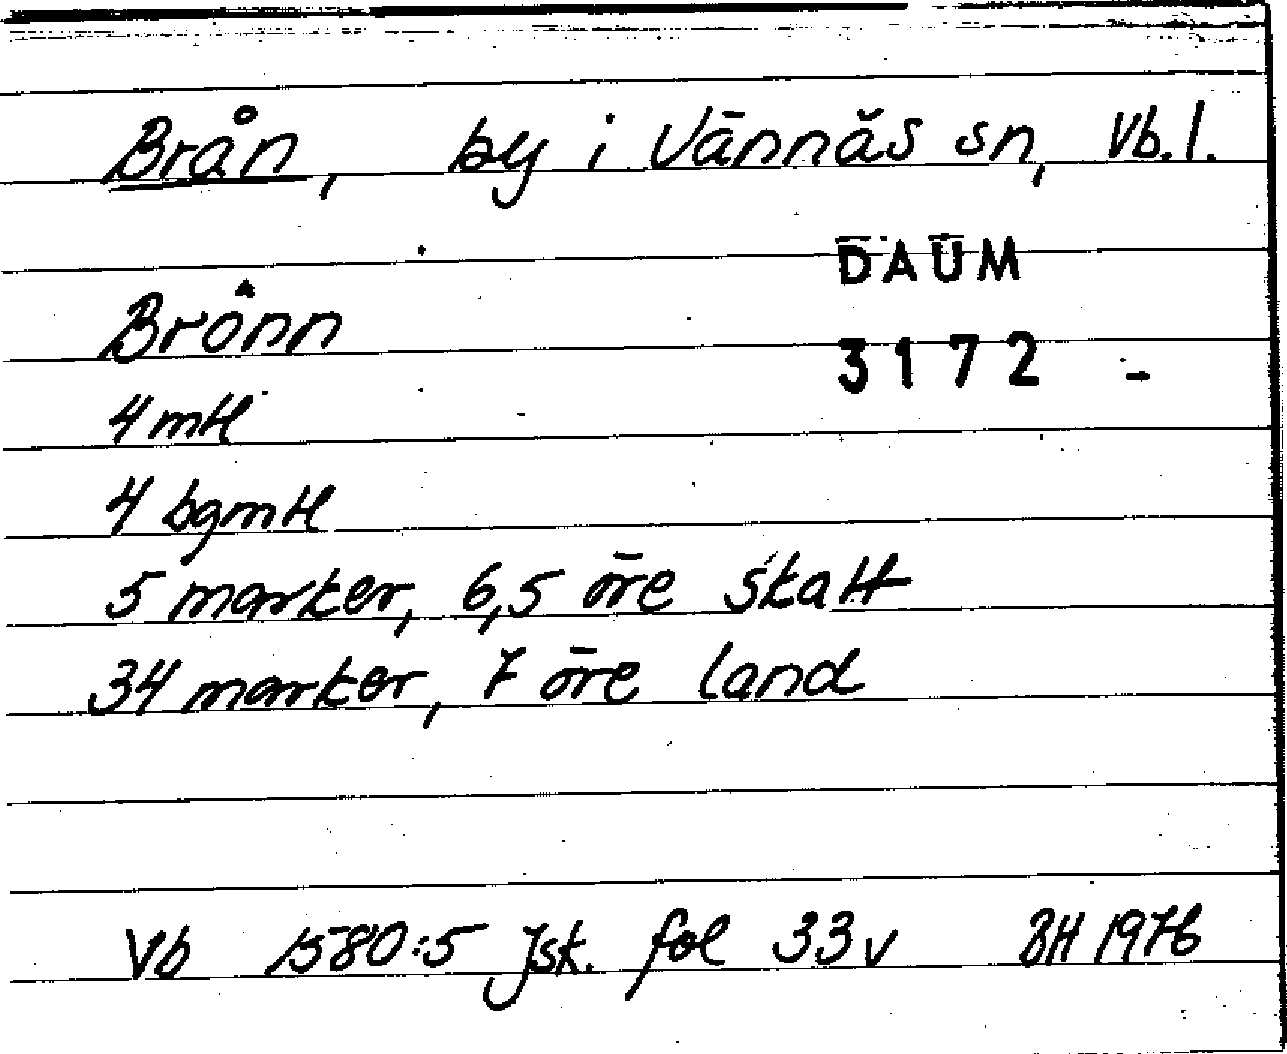 Brån, by i Vännäs sn, Vb. l.
DAUM
Brånn
3172 -
4 mtl
4 bgmtl
5 marker, 6,5 öre skatt
34 marker, 7 öre land
Vb 1580:5 Jsk. fol 33v BH 1976